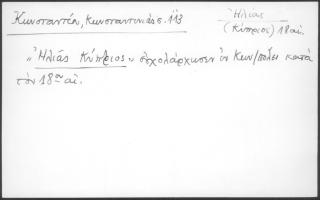 Κωνσταντίν, Κωνσταντινιάς σ. 113
Ἠλίας
(Κύπριος) 18 αἰ.
„Ἠλίας Κύπριος" σχολάρχησεν ἐν Κων/πόλει κατὰ
τὸν 18ον αἰ.